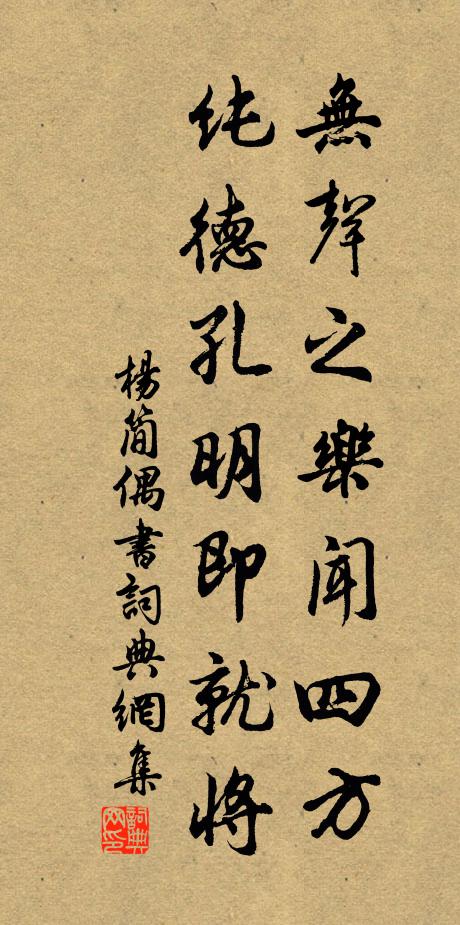 無聲之樂聞四方
純德孔明即就將
楊簡偶書詞典網集
詞典網印